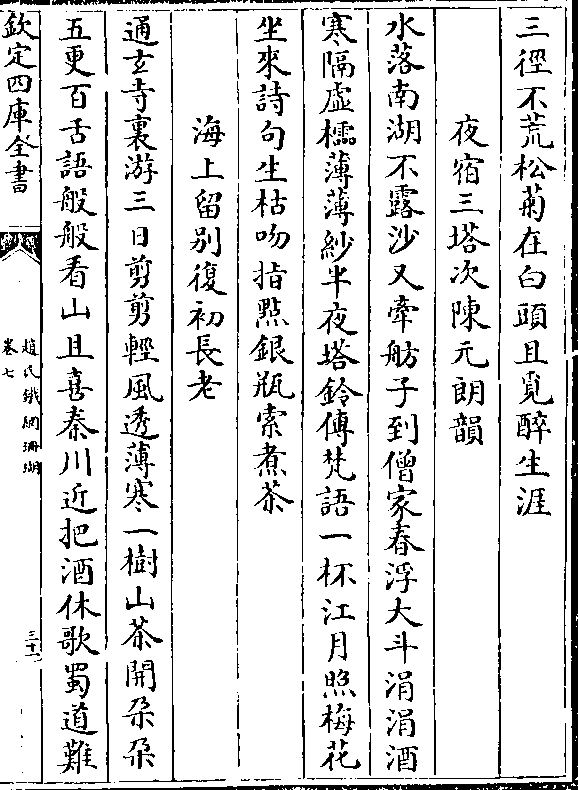 三徑不荒松菊在白頭且覓醉生涯
夜宿三塔次陳元朗韻
水落南湖不露沙又牽舫子到僧家春浮大斗涓涓酒
寒隔虛櫺薄薄紗半夜塔鈴傳梵語一杯江月照梅花
坐來詩句生枯吻指點銀瓶索煮茶
海上留别復初長老
通玄寺裏游三日剪剪輕風透薄寒一樹山茶開朶朶
五更百舌語般般看山且喜秦川近把酒休歌蜀道難
欽定四庫全書
趙氏鐵網珊瑚
卷七
三十一